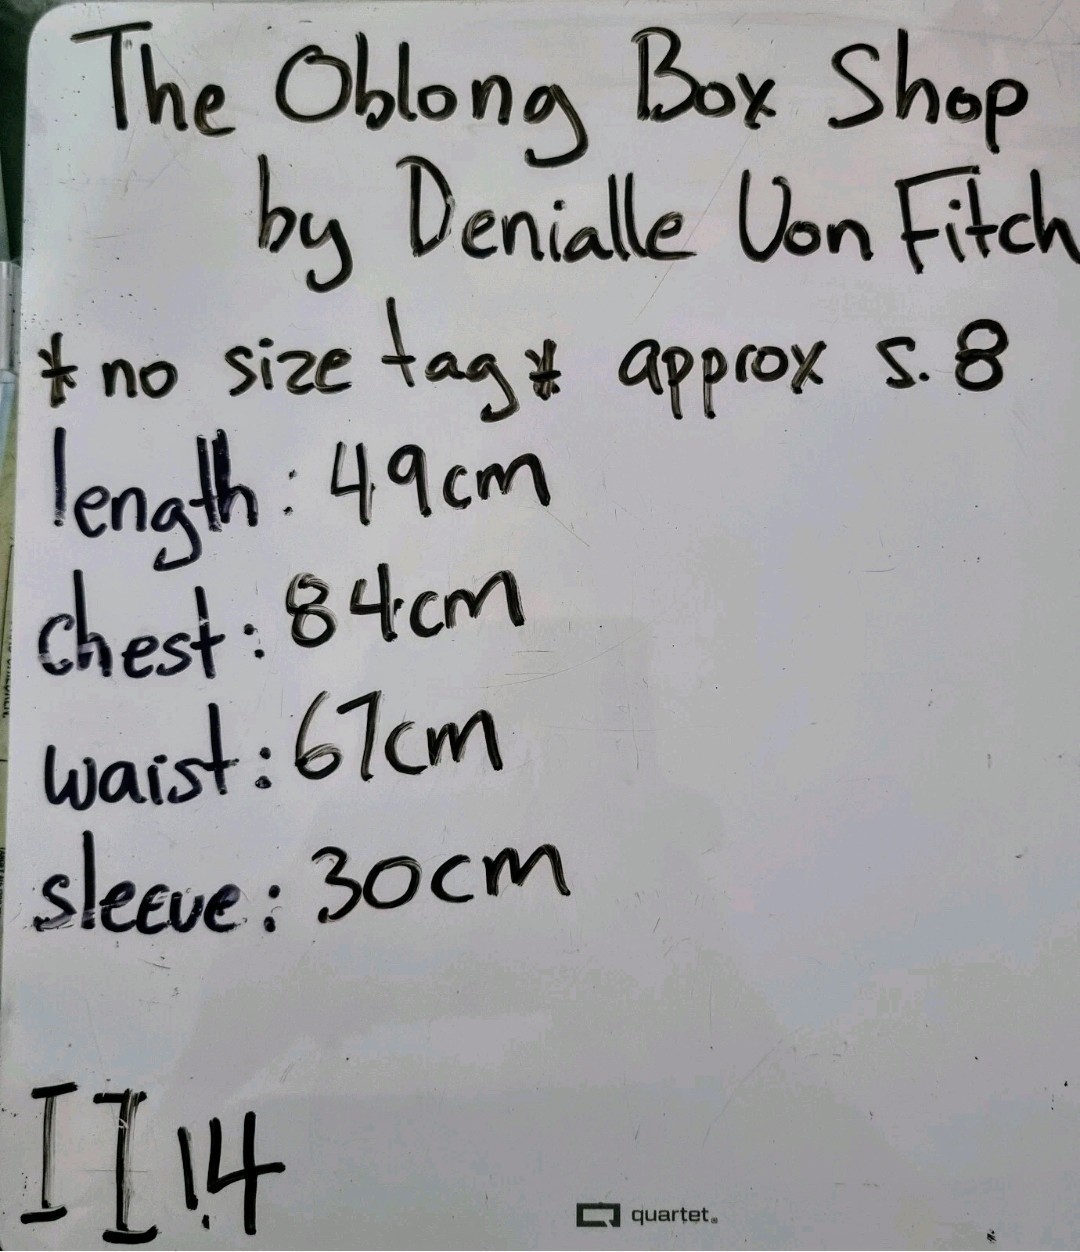 The Oblong Box Shop
by Denialle Von Fitch
*no size tag* approx s. 8
length: 49cm
chest: 84cm
waist: 67cm
sleeve: 30cm
II 14
quartet®